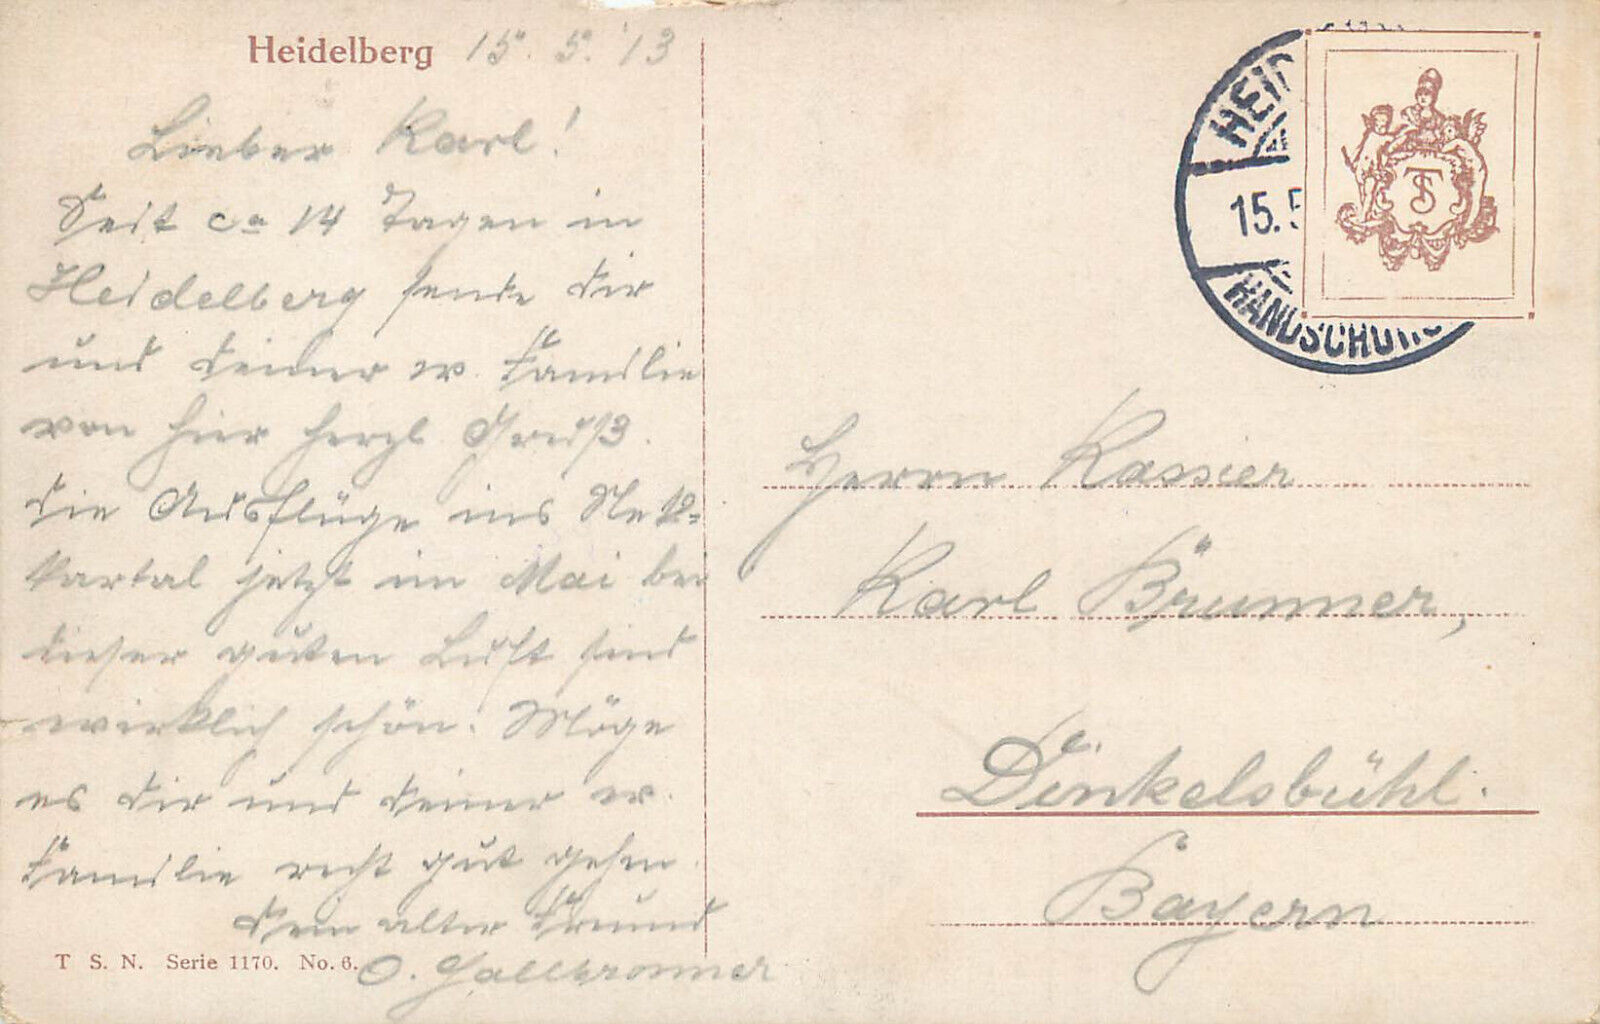 Heidelberg 15. 5. '13
Lieber Karl!
Seit ca 14 Tagen in
Heidelberg sende Dir
und Deiner w. Familie
von hier herzl Grüße.
Die Ausflüge ins Neck-
kartal jetzt im Mai bei
dieser guten Luft sind
wirklich schön. Möge
es Dir und Deiner w.
Familie recht gut gehen.
Dein alter Freund
T. S. N. Serie 1170. No. 6.
HEID
15.5
HANDSCHUHS
TS
Herrn Kassier
Karl Brunner,
Dinkelsbühl.
Bayern